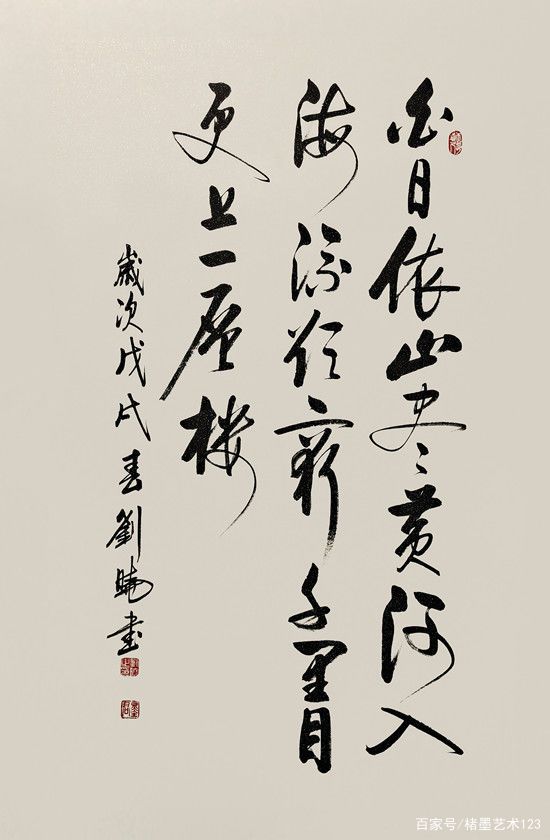 白日依山尽黄河入
海流欲窮千里目
更上一层楼
歲次戊戌春劉書
百家号/楮墨艺术123